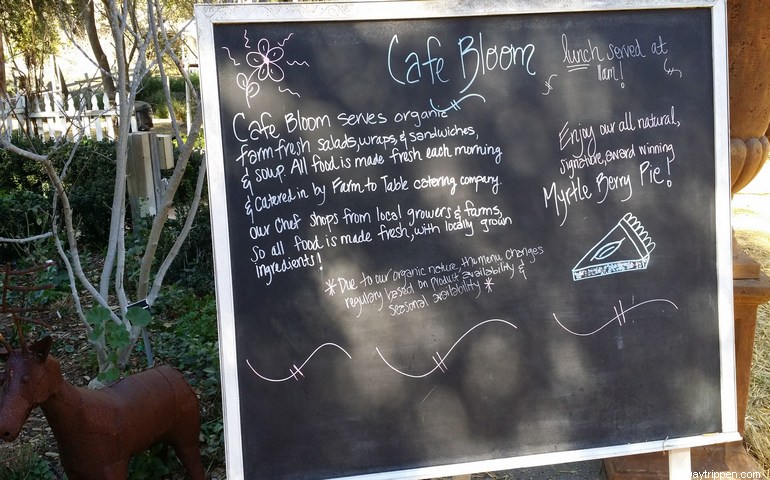 Cafe Bloom
lunch served at
11am!
Cafe Bloom serves organic
farm fresh salads, wraps, & sandwiches,
& soup. All food is made fresh each morning
& catered in by Farm to Table catering company.
our Chef shops from local growers & farms,
so all food is made fresh, with locally grown
ingredients!
*Due to our organic nature, the menu changes
regulary based on product availability &
seasonal availability*
Enjoy our all natural,
signature, award winning
Myrtle Berry Pie!
daytrippen.com